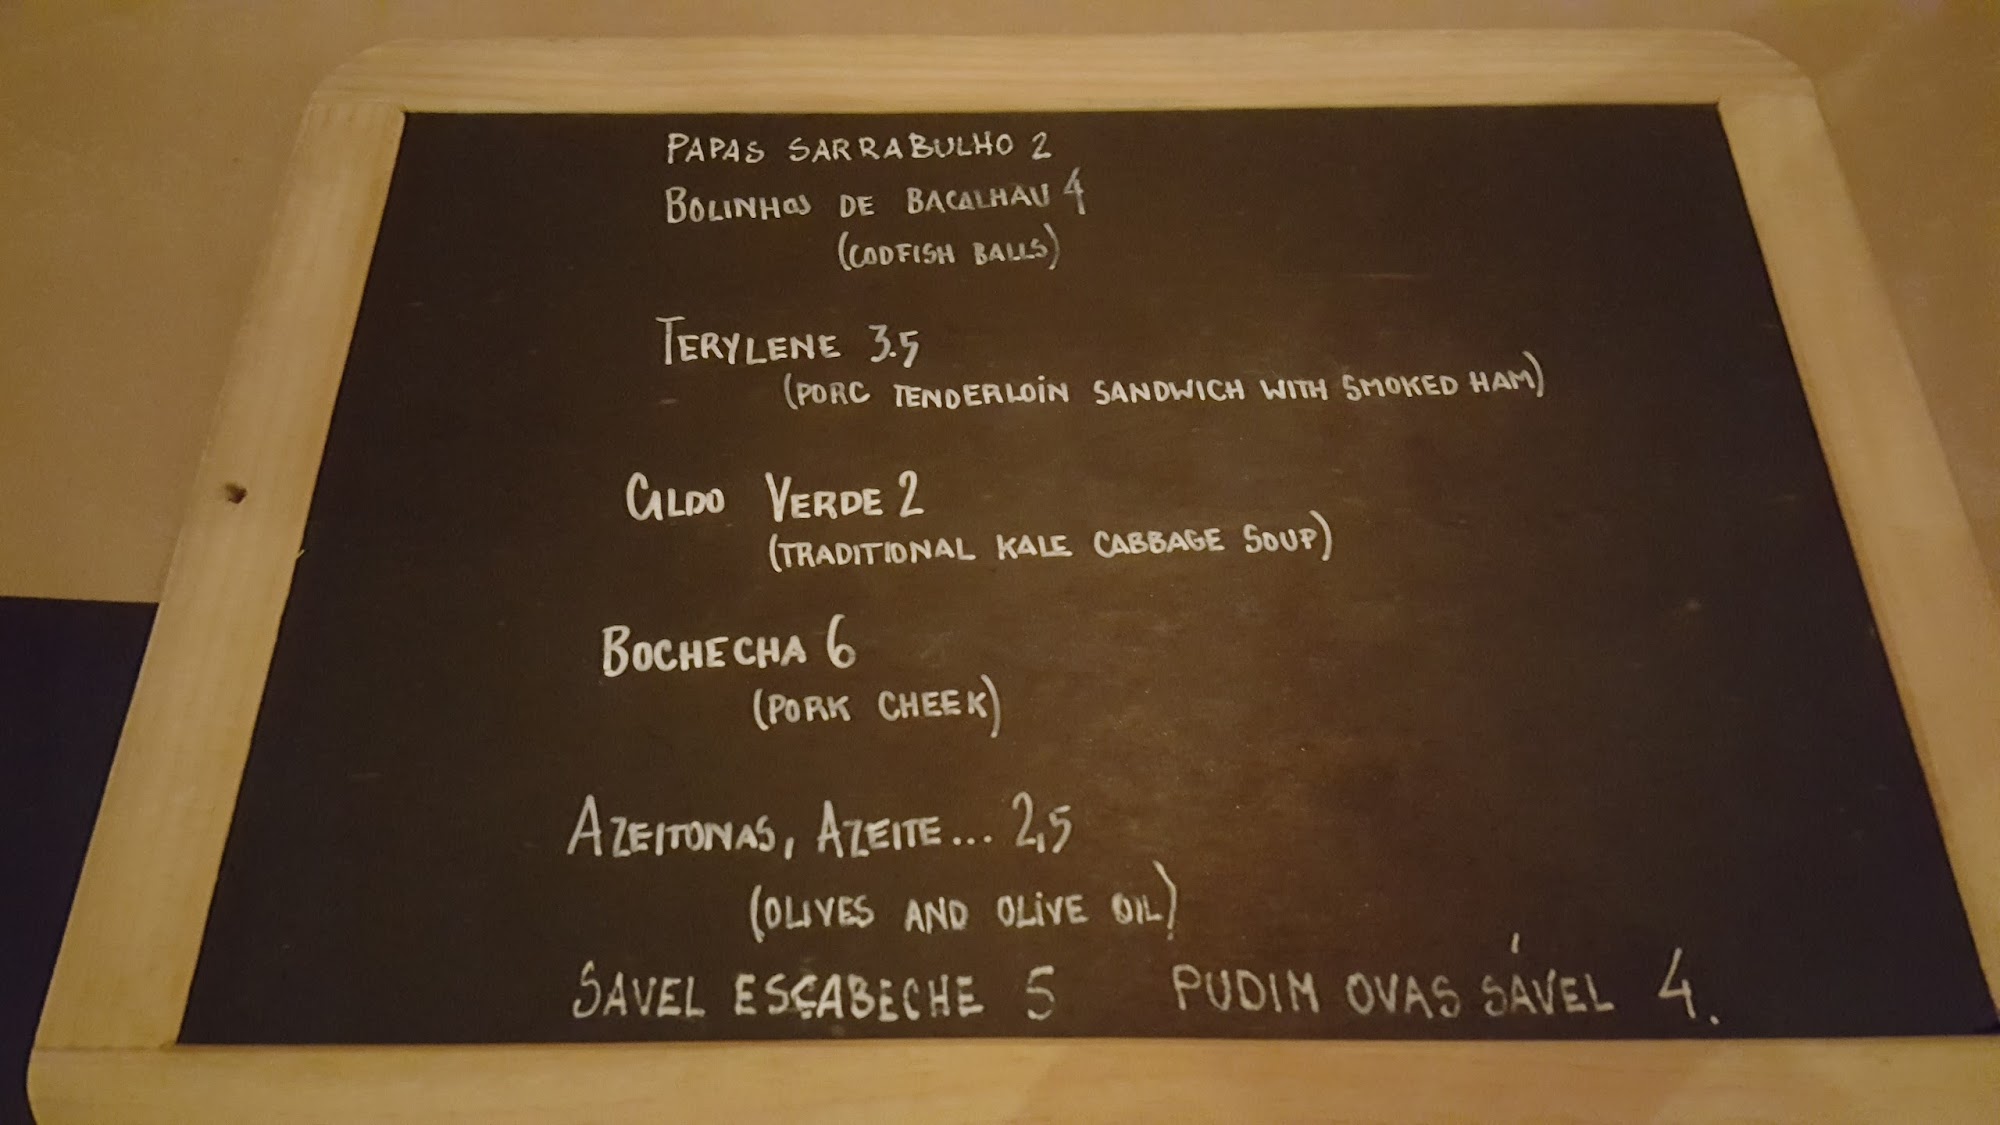 PAPAS SARRABULHO 2
BOLINHOS DE BACALHAU 4
(CODFISH BALLS)
TERYLENE 3.5
(PORC TENDERLOIN SANDWICH WITH SMOKED HAM)
CALDO VERDE 2
(TRADITIONAL KALE CABBAGE SOUP)
BOCHECHA 6
(PORK CHEEK)
AZEITONAS, AZEITE... 2,5
(OLIVES AND OLIVE OIL)
SAVEL ESÇABECHE 5 PUDIM OVAS SÁVEL 4.